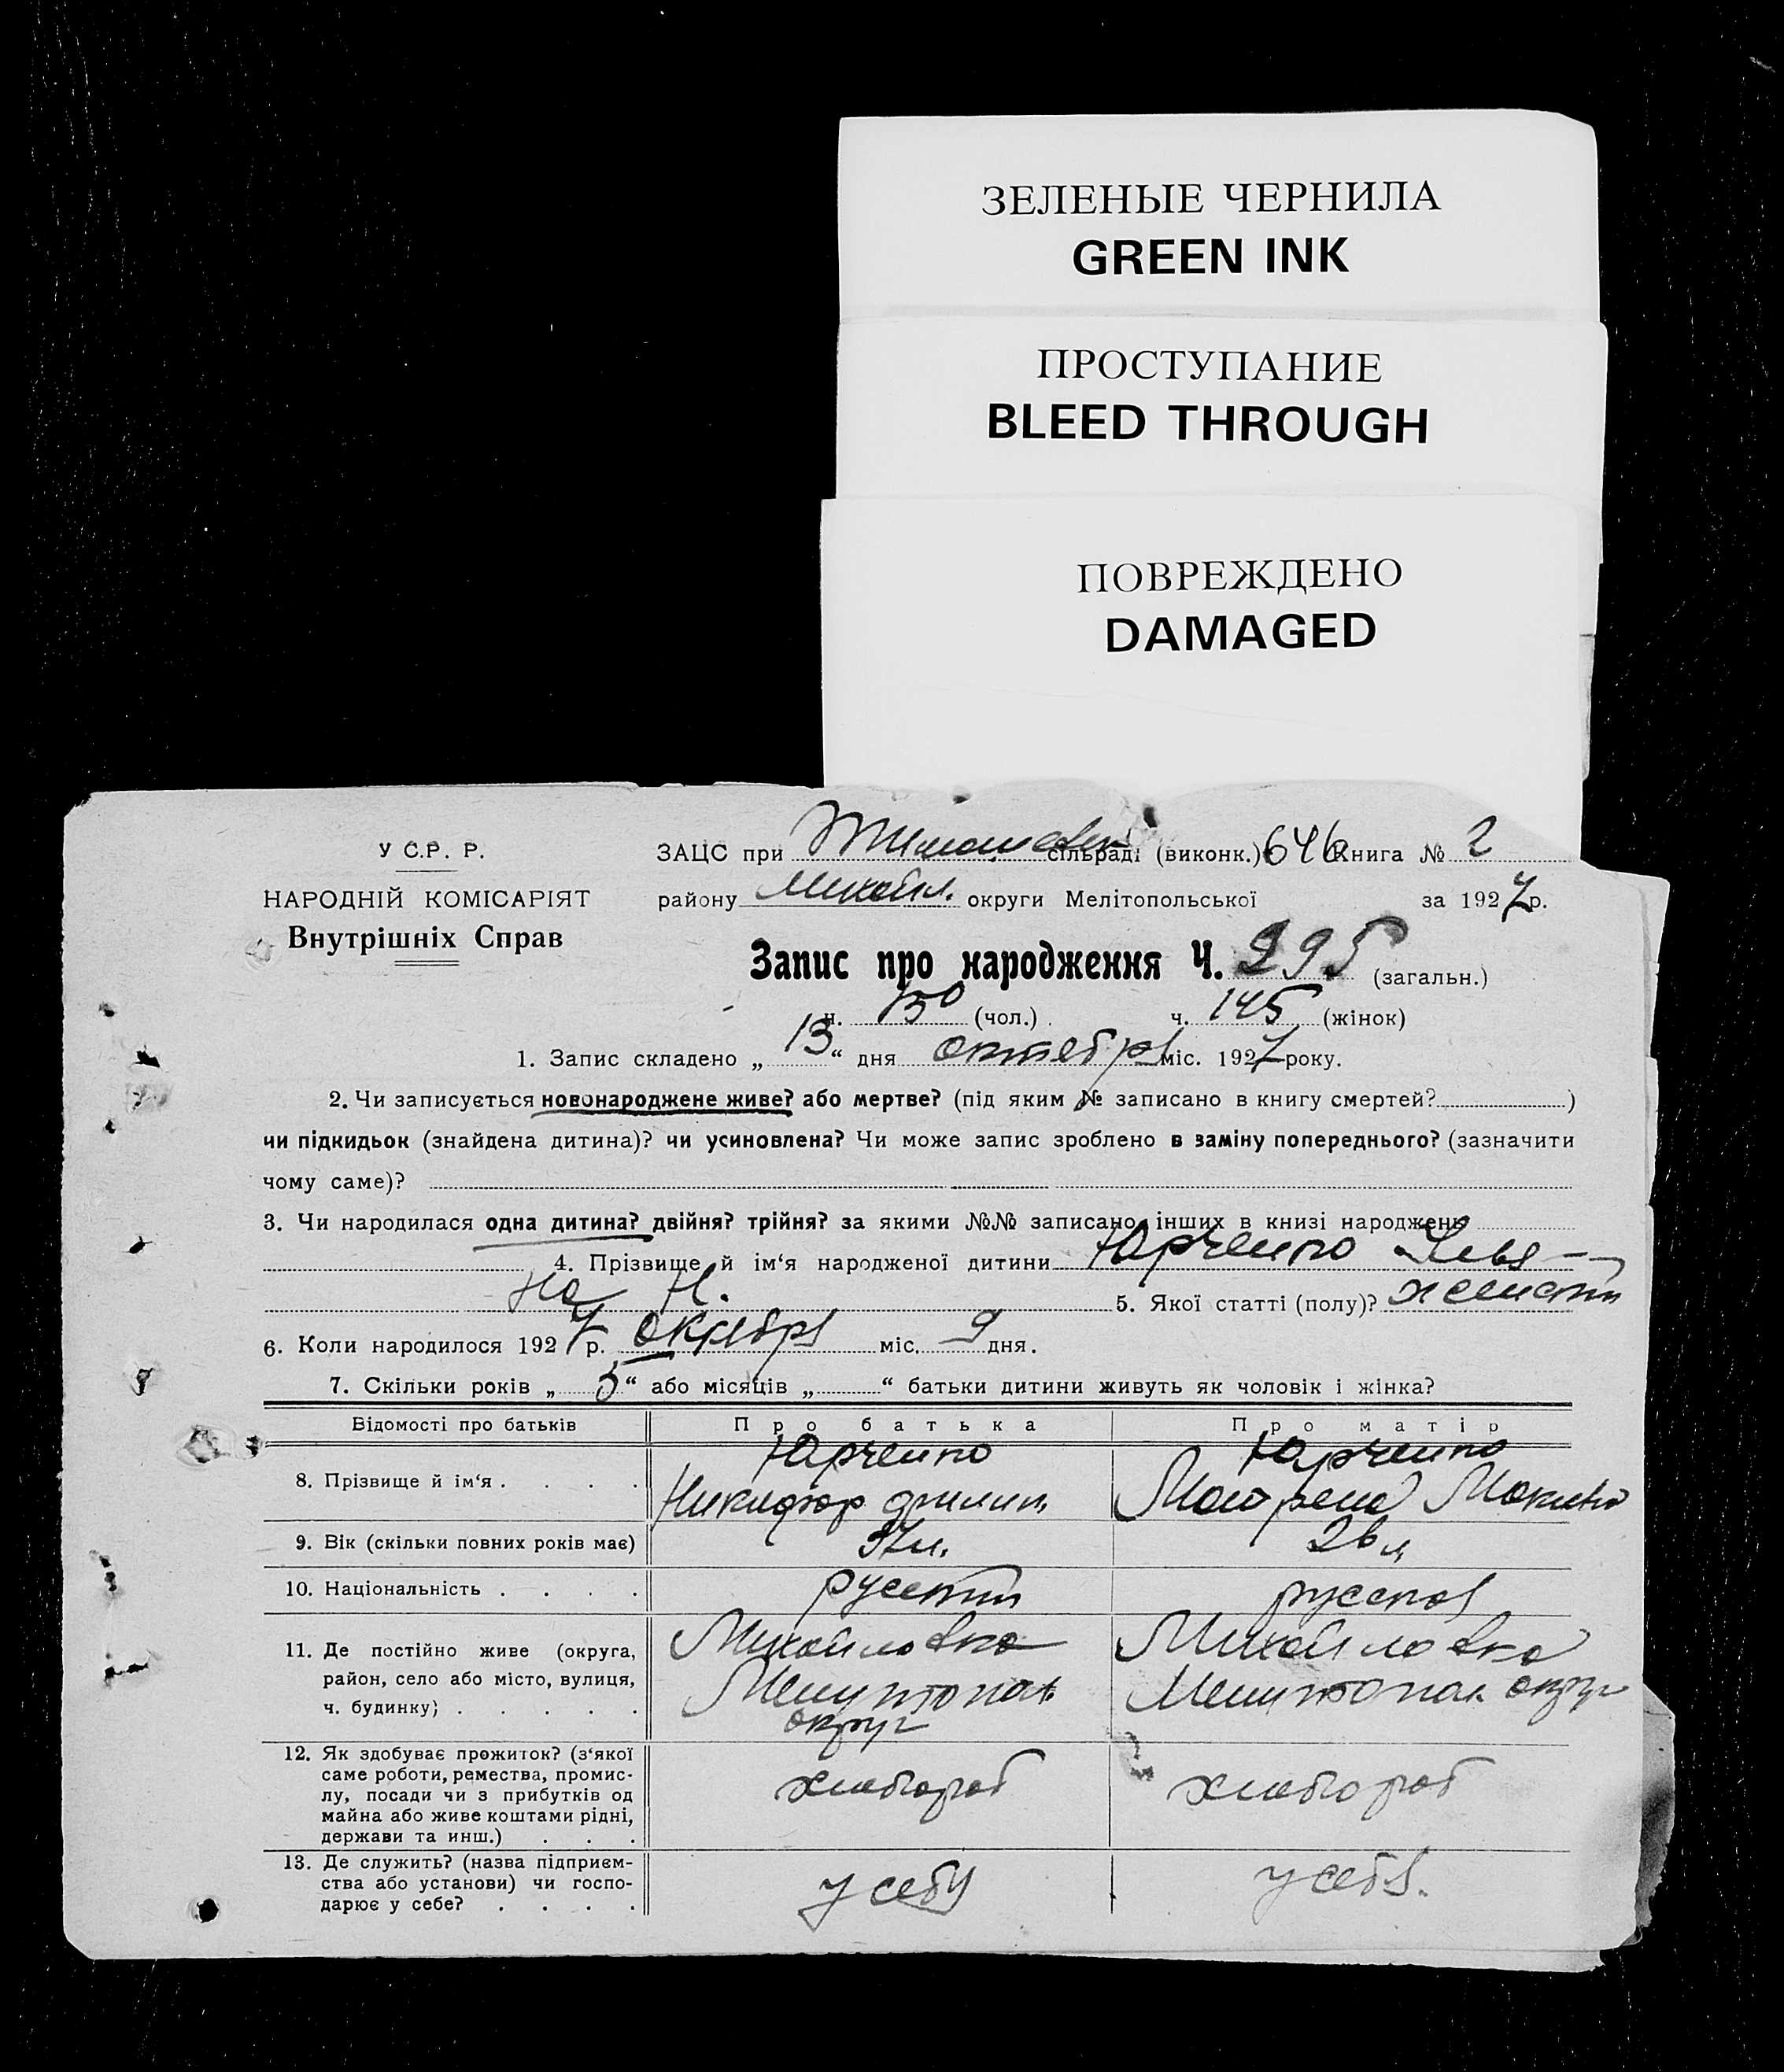 ЗЕЛЕНЫЕ ЧЕРНИЛА
GREEN INK
ПРОСТУПАНИЕ
BLEED THROUGH
ПОВРЕЖДЕНО
DAMAGED
У С.Р. Р.
НАРОДНІЙ КОМІСАРІЯТ
Внутрішніх Справ
ЗАЦС при сільраді (виконк.) 646 Книга № 2
району Михайл. округи Мелітопольської за 1927 р.
Запис про народження Ч. 295 (загальн.)
ч. 150 (чол.) . ч. 145 (жінок)
1. Запис складено „ 13 “ дня октебря міс. 1927 року.
2. Чи записується новонароджене живе? або мертве? (під яким № записано в книгу смертей? )
чи підкидьок (знайдена дитина)? чи усиновлена? Чи може запис зроблено в заміну попереднього? (зазначити
чому саме)?
3. Чи народилася одна дитина? двійня? трійня? за якими №№ записано інших в книзі народжень
4. Прізвище й ім‘я народженої дитини Юрченко Улья-
на Н. 5. Якої статті (полу)? женский
6. Коли народилося 1927 р. октебря міс. 9 дня.
7. Скільки років „ 5 “ або місяців „ “ батьки дитини живуть як чоловік і жінка?
Відомості про батьків Про батька Про матір
8. Прізвище й ім‘я . . . . Юрченко Юрченко
Никифор Филип Мотрена
9. Вік (скільки повних років має) 37 л. 26 л
10. Національність . . . . русский русская
11. Де постійно живе (округа, Михайловка Михайловка
район, село або місто, вулиця, Мелитопол. Мелитопол. округ
ч. будинку; . . . . . округ
12. Як здобуває прожиток? (з‘якої
саме роботи, ремества, промис-
лу, посади чи з прибутків од хлебороб хлебороб
майна або живе коштами рідні,
держави та инш.) . . .
13. Де служить? (назва підприєм-
ства або установи) чи госпо- у себя у себя.
дарює у себе? . . . .